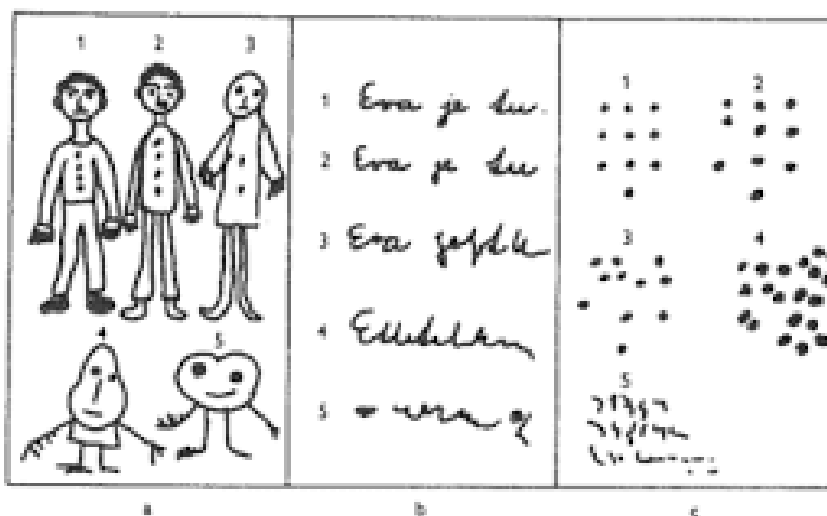 1 2 3
4 5
1 Eva je tu.
2 Eva je tu
3 Eva
4
5
1 2
3 4
5
a b c